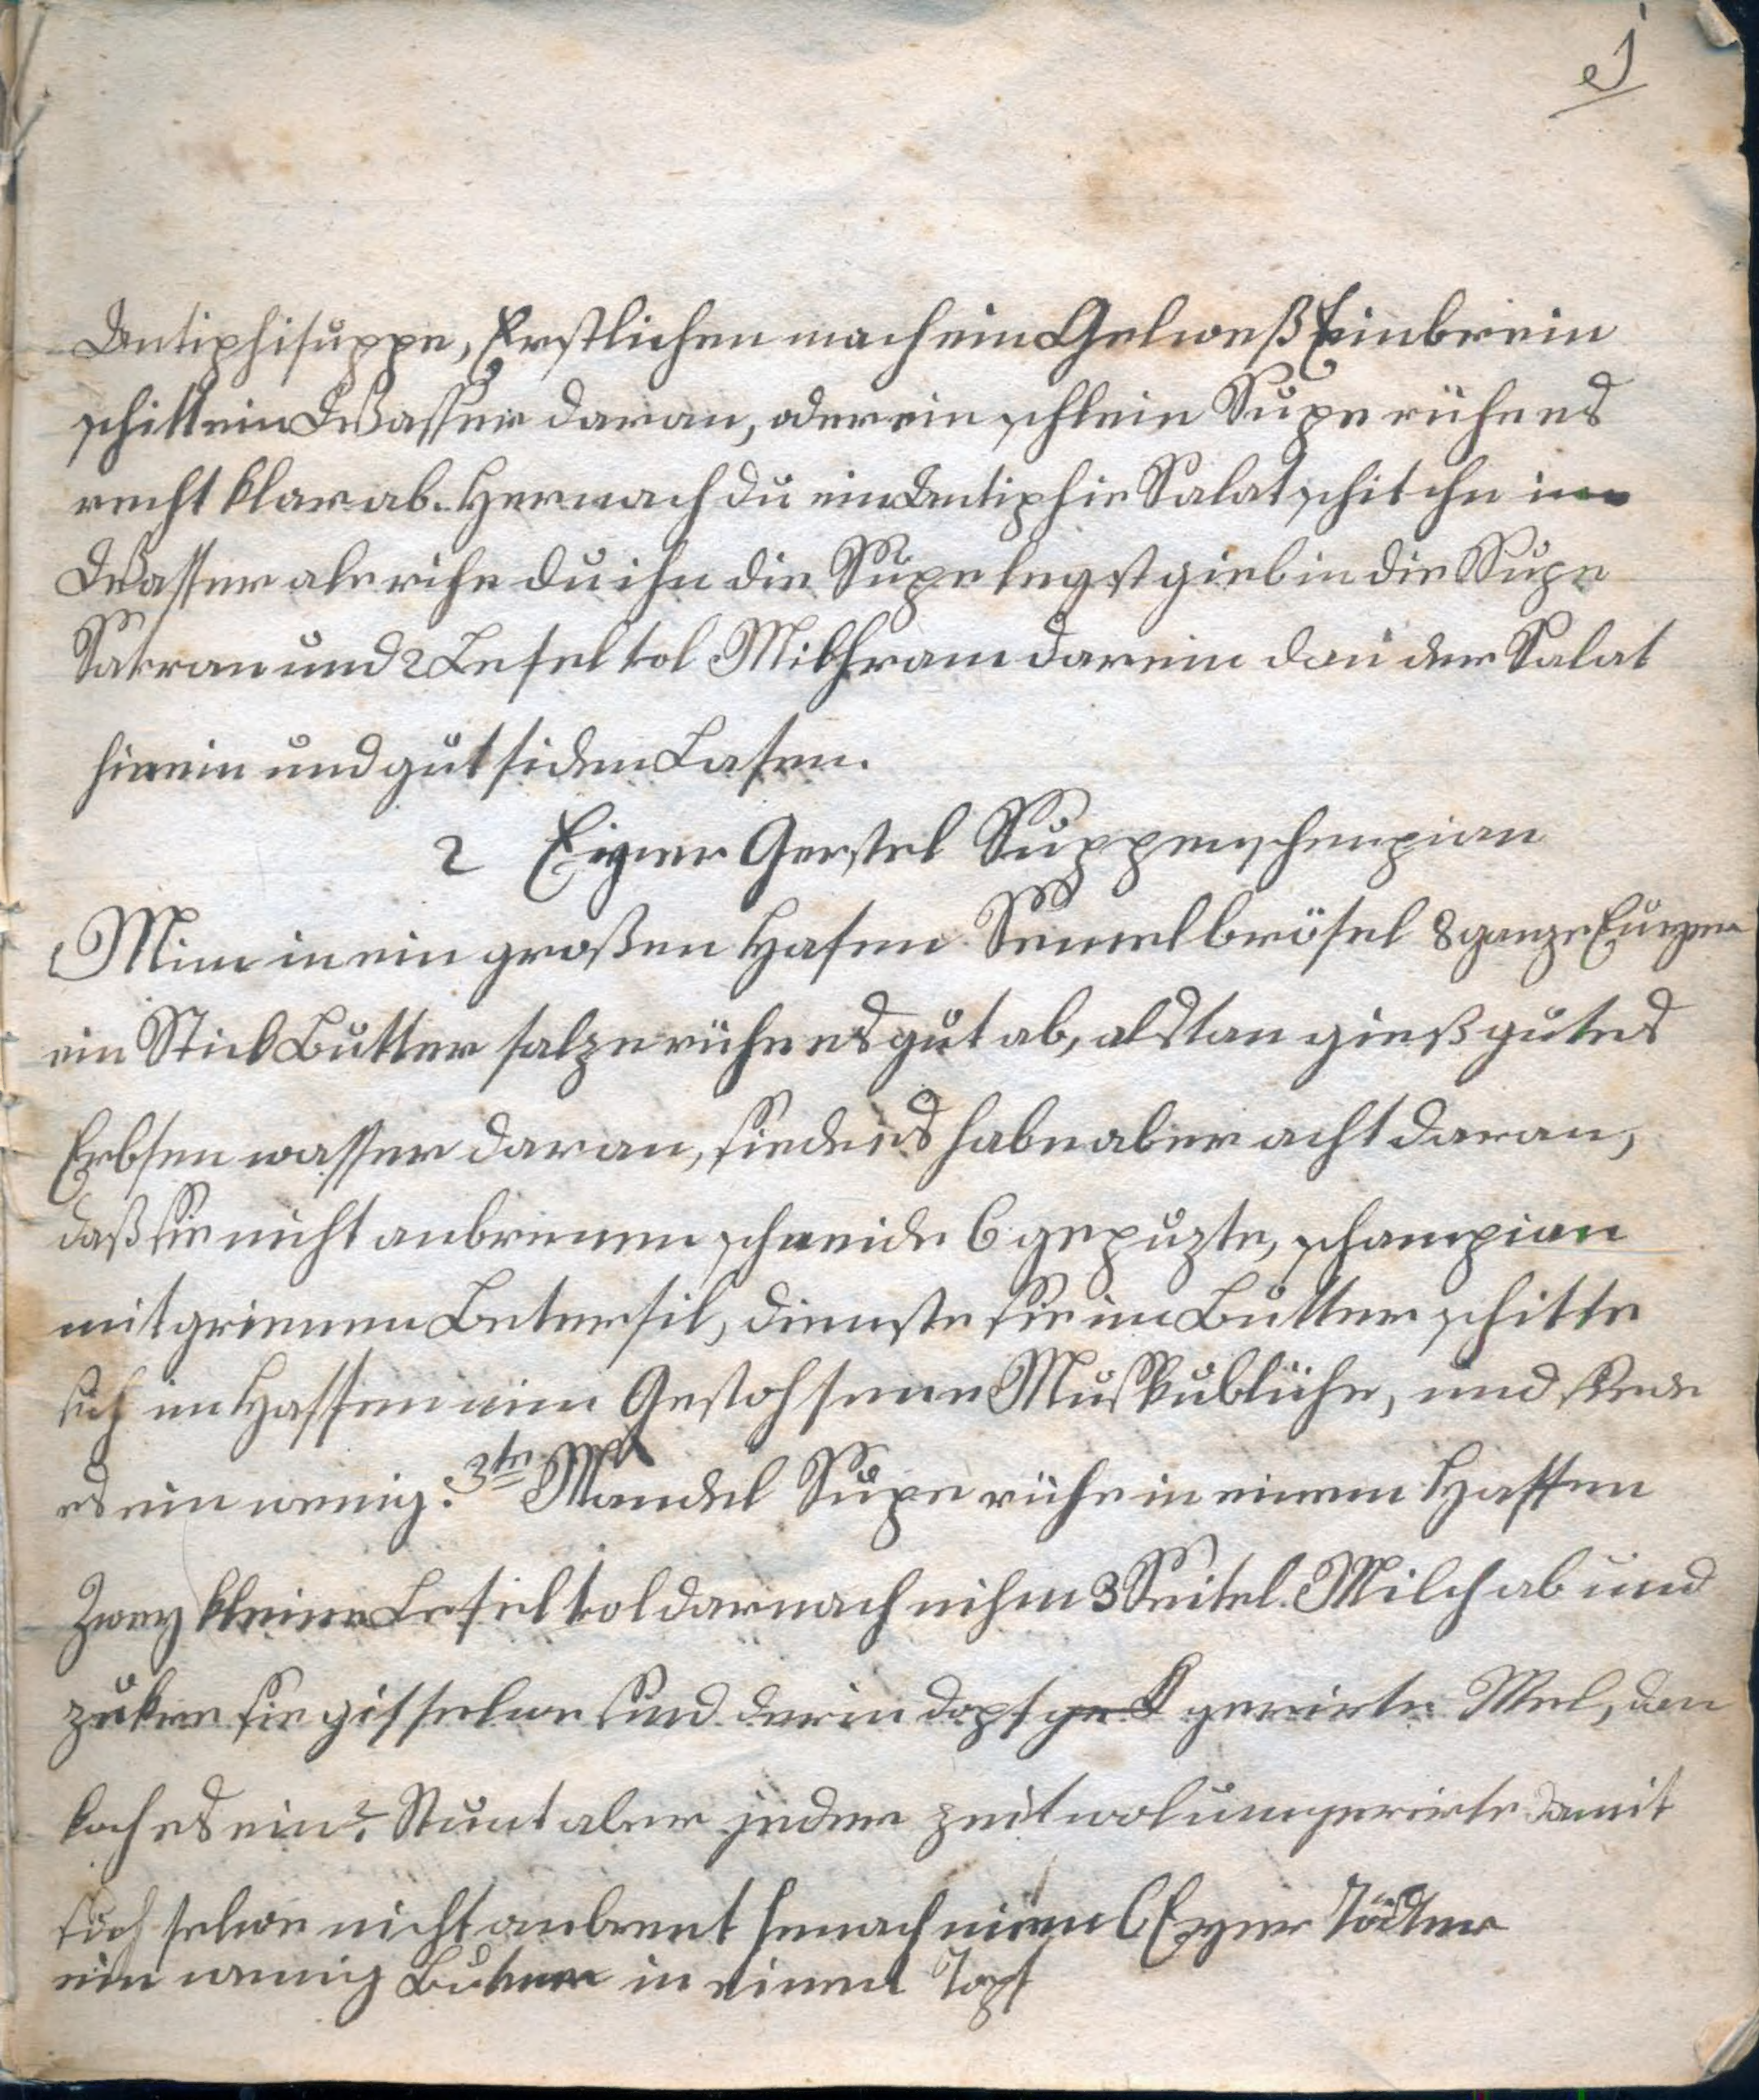 1
Antiphisuppe, Erstlichen mach ein Gelweß Einbrein
schitt ein Wasser daran, oder ein schlein Supe rühe es
recht klar ab. Hernach du ein Antiphie Salat schit ihn im
Wasser ale rihe du ihn die Supe legst gieb in die Supe
Safran und 2 Lefel fol Milhram darein dan der Salat
hinein und gut siden Lasen.
2 Eyer Gerstel Suppen schenpian
Mim in ein großen Hafen Semelbrösel 8 ganze Euyer
ein Stick Butter salze rühe es gut ab, alstan gieß gutes
Erbsen wasser daran, siede es habe aber acht daran,
daß sie nicht anbrennen schneide 6 gepuzte, schampian
mit grienem Betersil, dienste sie im Butter schitte
sich im Haffen nim Gestohsene Muskublühe, und siede
es ein wenig. 3te Mandel Supe rühe in einem Haffen
Zwey kleine Lefel fol darnach nihm 3 Seitel Milch ab und
zuker sie gisselwe sind darin dopf gerirte Mel, dan
koch es ein Stunt aber jeder zeit wol umgerirte damit
sich selwe nicht anbrent henach nimm 6 Eyer Dödter
ein wenig Buter in einem Topf